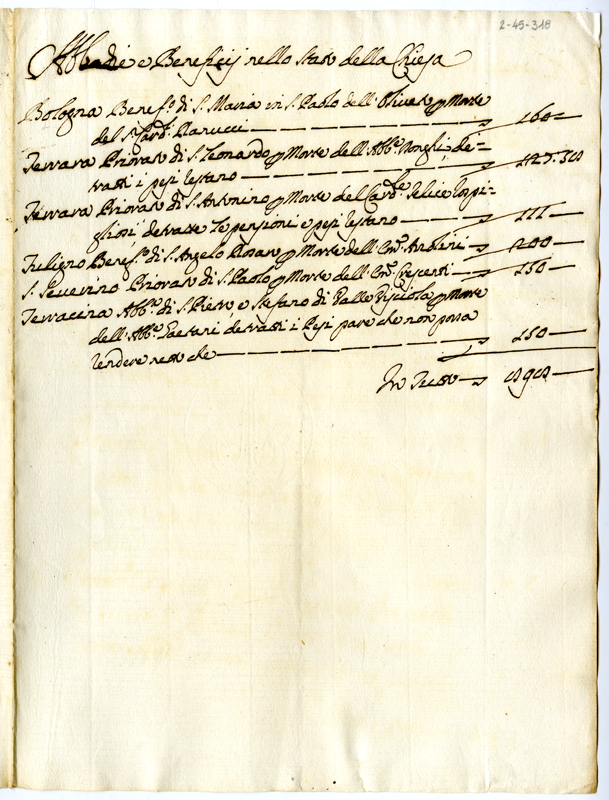 2-45-318
Abbadie e Beneficij nello Stato della Chiesa
Bologna Benef.o di S. Maria in S. Paolo dell' Oliveto p Morte
del S. Card.l Ranucci — 160 —
Ferrara Priorato di S. Leonardo p Morte dell' Abb.e de-
tratti i pesi restano —
Ferrara Priorato di S. Antonino p Morte del Card.le Felice Rospi-
gliosi detratte le pensioni e pesi restano — 111 —
Fuligno Benef.o di S. Angelo p Morte dell' — 200 —
S. Severino Priorato di S. Paolo p Morte dell' Crescenti — 150 —
Terracina Abb.a di S. Pietro, e Stefano di Valle Visciola p Morte
dell' Abb.e Gaetani detratti i Pesi pare che non possa
rendere netto che — 150 —
In Tutto —